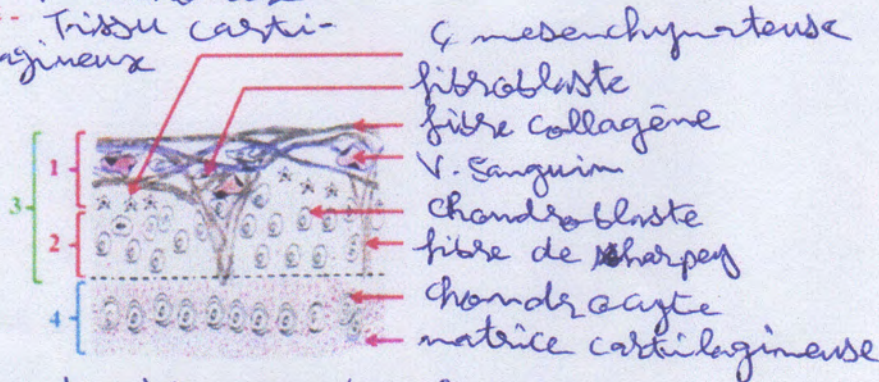 Tissu carti-
agineux
ç mesenchymateuse
fibroblaste
fibre collagène
V. Sanguin
chondroblaste
fibre de sharpey
chondrocyte
matrice cartilagineuse
1
3
2
4